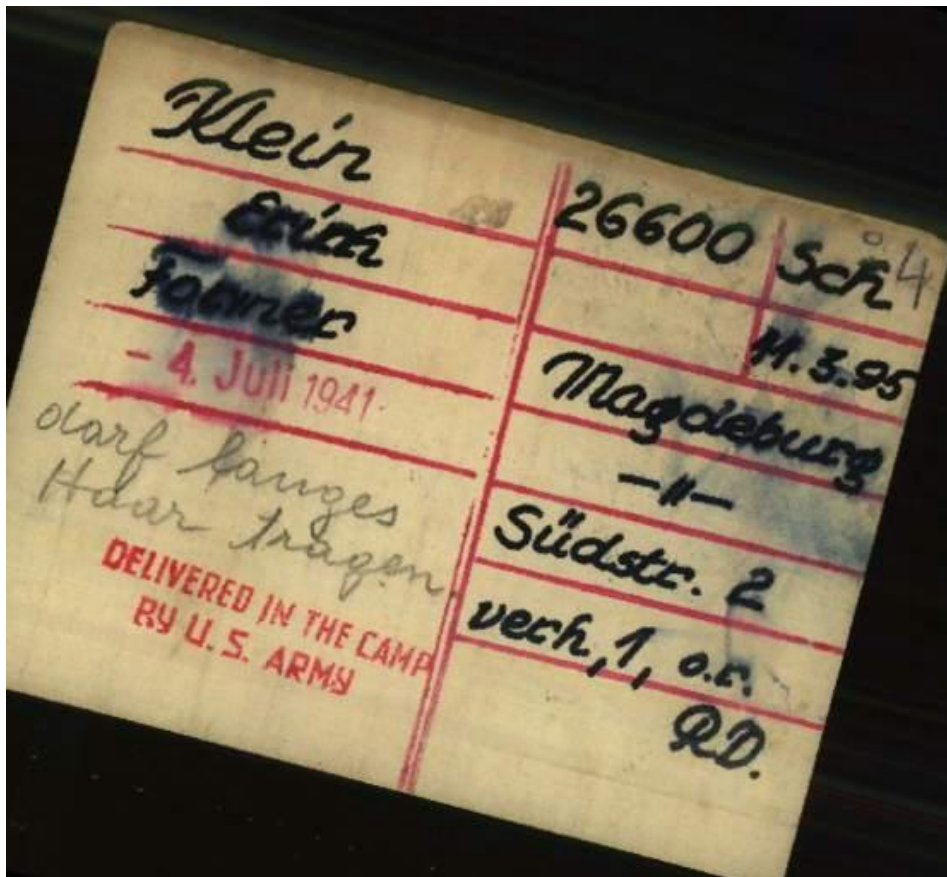 Klein
Erich
Former
- 4. Juli 1941
darf langes
Haar tragen.
DELIVERED IN THE CAMP
BY U. S. ARMY
26600 Sch 4
11.3.95
Magdeburg
-"-
Südstr. 2
verh, 1, o.r.
R.D.